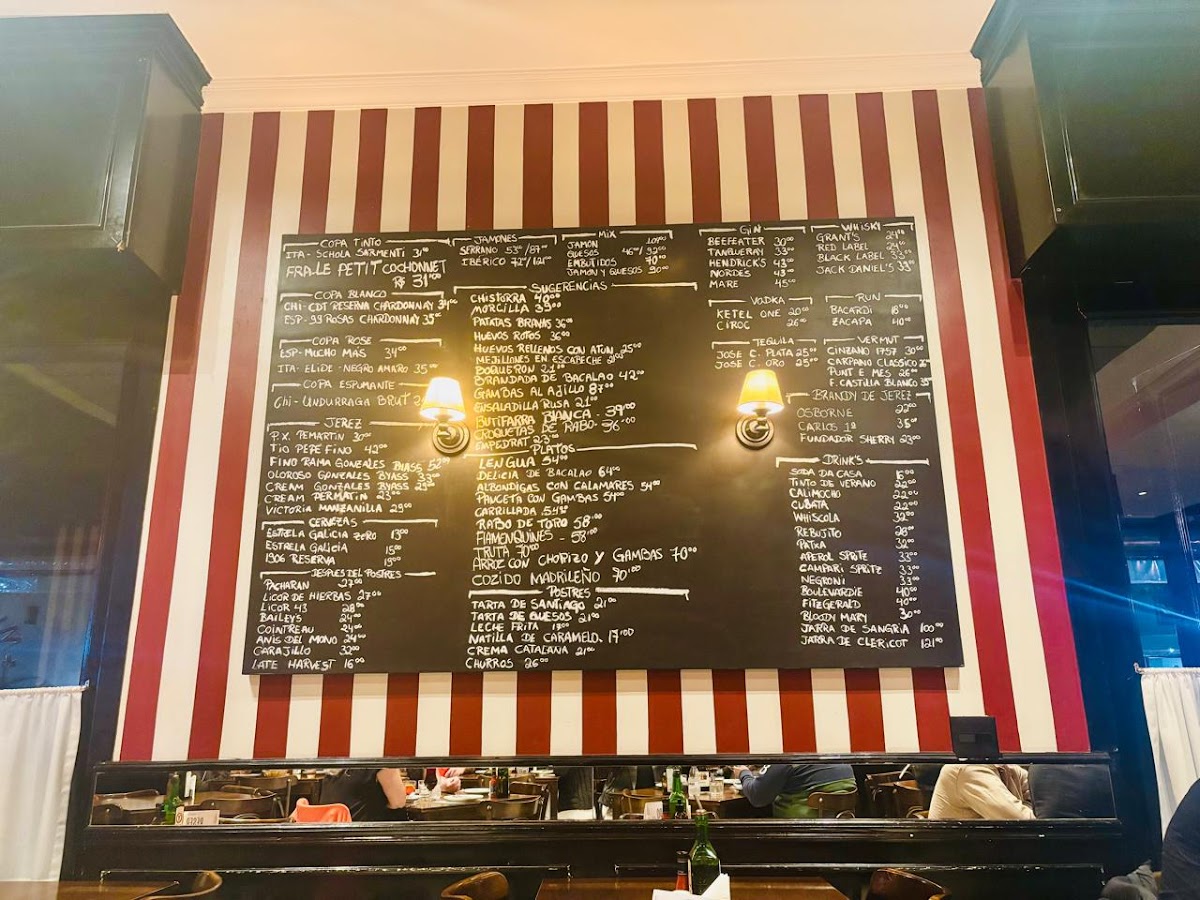 COPA TINTO
ITA - SCHOLA SARMENTI 31⁰⁰
FRA. LE PETIT COCHONNET
R$ 31⁰⁰
COPA BLANCO
CHI - CDT RESERVA CHARDONNAY 34⁰⁰
ESP - 99 ROSAS CHARDONNAY 35⁰⁰
COPA ROSE
ESP - MUCHO MÁS 34⁰⁰
ITA - ELIDE - NEGRO AMARO 35⁰⁰
COPA ESPUMANTE
CHI - UNDURRAGA BRUT
JEREZ
P.X. PEMARTIN 30⁰⁰
TIO PEPE FINO 42⁰⁰
FINO RAMA GONZALES BYASS 52⁰⁰
OLOROSO GONZALES BYASS 33⁰⁰
CREAM GONZALES BYASS 29⁰⁰
CREAM PERMATIN 23⁰⁰
VICTORIA MANZANILLA 29⁰⁰
CERVEZAS
ESTRELA GALICIA ZERO 13⁰⁰
ESTRELA GALICIA 15⁰⁰
1906 RESERVA 19⁰⁰
DESPUES DEL POSTRES
PACHARAN 27⁰⁰
LICOR DE HIERBAS 27⁰⁰
LICOR 43 28⁰⁰
BAILEYS 24⁰⁰
COINTREAU 24⁰⁰
ANIS DEL MONO 24⁰⁰
CARAJILLO 32⁰⁰
LATE HARVEST 16⁰⁰
JAMONES
SERRANO 53⁰⁰/87⁰⁰
IBÉRICO 72⁰⁰/121⁰⁰
MIX
JAMON 109⁰⁰
QUESOS 46⁰⁰/92⁰⁰
EMBUTIDOS 70⁰⁰
JAMON Y QUESOS 90⁰⁰
SUGERENCIAS
CHISTORRA 40⁰⁰
MORCILLA 39⁰⁰
PATATAS BRAVAS 36⁰⁰
HUEVOS ROTOS 36⁰⁰
HUEVOS RELLENOS CON ATUN 25⁰⁰
MEJILLONES EN ESCAPECHE 21⁰⁰
BOQUERON 21⁰⁰
BRANDADA DE BACALAO 42⁰⁰
GAMBAS AL AJILLO 87⁰⁰
ENSALADILLA RUSA 21⁰⁰
BUTIFARRA BLANCA - 39⁰⁰
CROQUETAS DE RABO - 36⁰⁰
EMPEDRAT 23⁰⁰
PLATOS
LENGUA 54⁰⁰
DELICIA DE BACALAO 64⁰⁰
ALBONDIGAS CON CALAMARES 54⁰⁰
PANCETA CON GAMBAS 54⁰⁰
CARRILLADA 54⁰⁰
RABO DE TORO 58⁰⁰
FLAMENQUINES - 58⁰⁰
TRUTA 70⁰⁰
ARROZ CON CHORIZO Y GAMBAS 70⁰⁰
COZIDO MADRILEÑO 70⁰⁰
POSTRES
TARTA DE SANTIAGO 21⁰⁰
TARTA DE QUESOS 21⁰⁰
LECHE FRITA 18⁰⁰
NATILLA DE CARAMELO. 17⁰⁰
CREMA CATALANA 21⁰⁰
CHURROS 26⁰⁰
GIN
BEEFEATER 30⁰⁰
TANQUERAY 33⁰⁰
HENDRICK'S 43⁰⁰
NORDES 43⁰⁰
MARE 45⁰⁰
VODKA
KETEL ONE 20⁰⁰
CIROC 26⁰⁰
TEQUILA
JOSE C. PLATA 25⁰⁰
JOSE C. ORO 25⁰⁰
WHISKY
GRANT'S 24⁰⁰
RED LABEL 24⁰⁰
BLACK LABEL 33⁰⁰
JACK DANIEL'S 33⁰⁰
RUN
BACARDI 18⁰⁰
ZACAPA 40⁰⁰
VERMUT
CINZANO 1757 30⁰⁰
CARPANO CLASSICO 26⁰⁰
PUNT E MES 26⁰⁰
F. CASTILLA BLANCO 35⁰⁰
BRANDY DE JEREZ
OSBORNE 22⁰⁰
CARLOS 1ª 35⁰⁰
FUNDADOR SHERRY 23⁰⁰
DRINK'S
SODA DA CASA 15⁰⁰
TINTO DE VERANO 22⁰⁰
CALIMOCHO 22⁰⁰
CUBATA 22⁰⁰
WHISCOLA 32⁰⁰
REBUJITO 28⁰⁰
PATXA 32⁰⁰
APEROL SPRITZ 33⁰⁰
CAMPARI SPRITZ 33⁰⁰
NEGRONI 33⁰⁰
BOULEVARDIE 40⁰⁰
FITZGERALD 40⁰⁰
BLOODY MARY 30⁰⁰
JARRA DE SANGRIA 100⁰⁰
JARRA DE CLERICOT 121⁰⁰